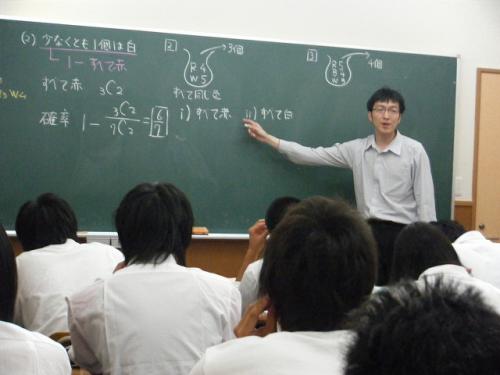 (2) 少なくとも1個は白
1-すべて赤
すべて赤 3C2
W4
確率 1 - 3C2/7C2 = 6/7
[2] →3個
R4
W5
すべて同じ色
i) すべて赤 ii) すべて白
[3] →4個
R5
W4